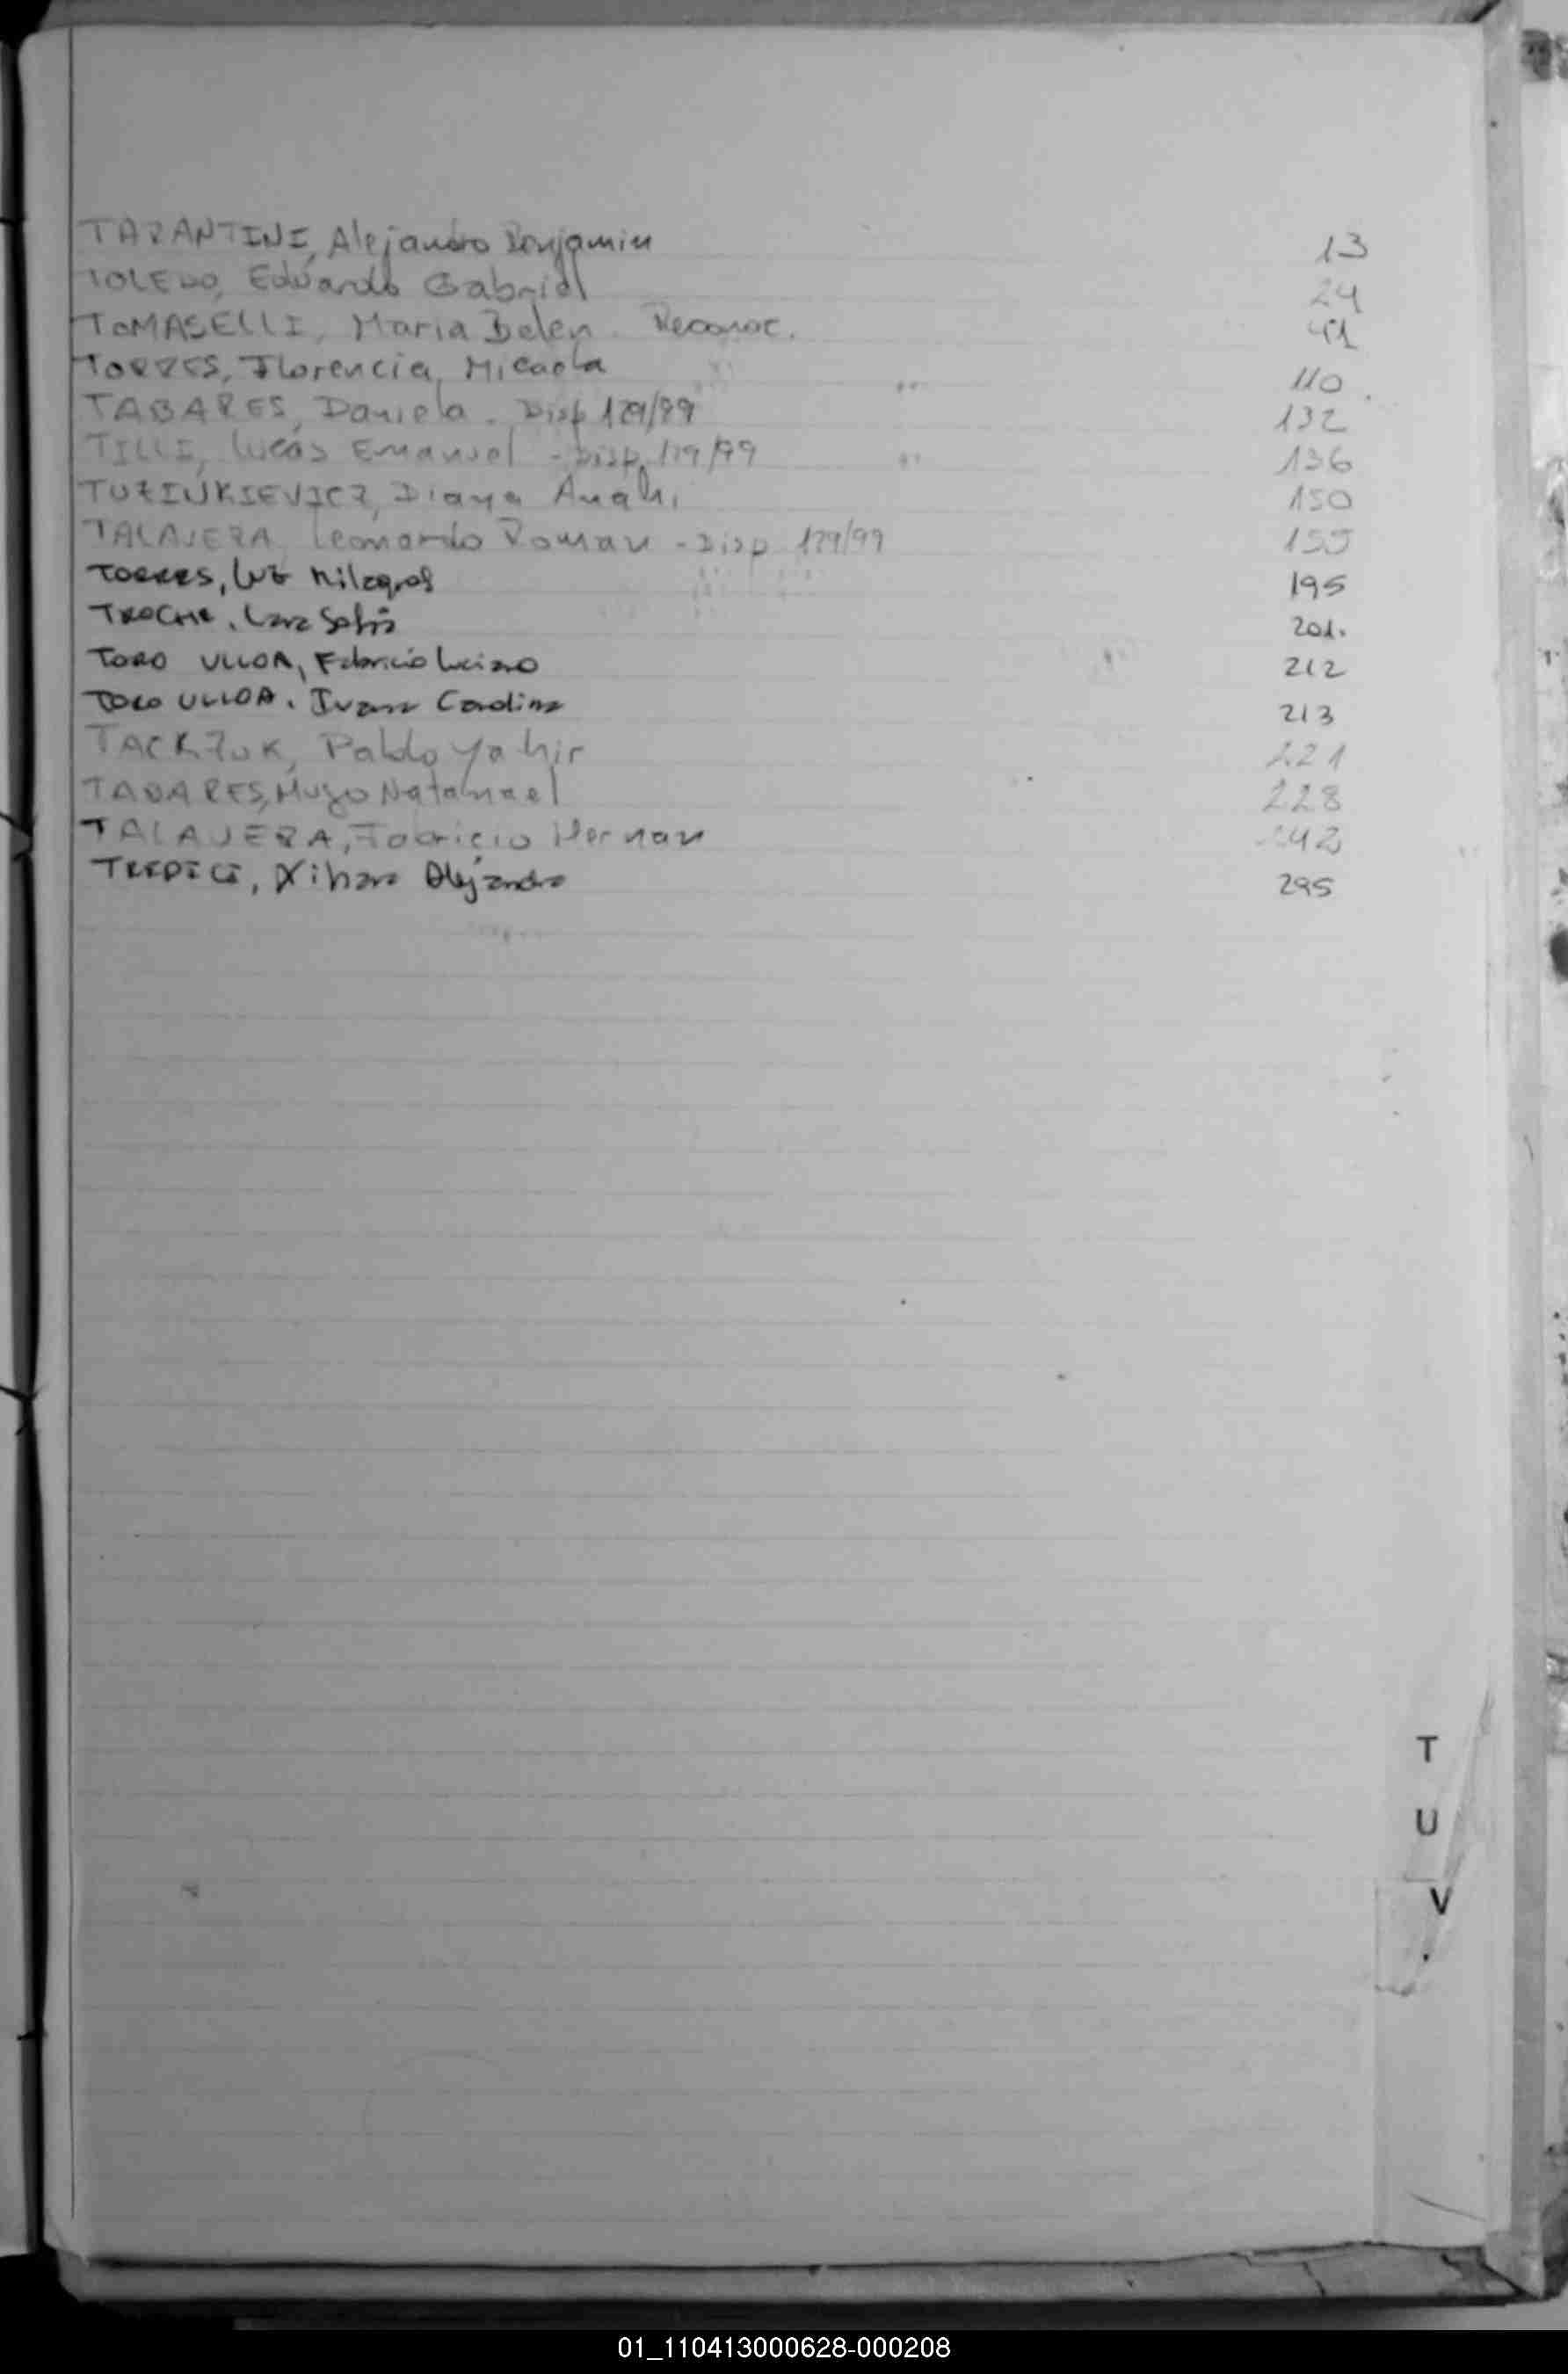 TARANTINI, Alejandro Benjamin 13
TOLEDO, Eduardo Gabriel 24
TOMASELLI, Maria Belen. Reconoc. 41
TORRES, Florencia Micaela 110
TABARES, Daniela. Disp 179/99 132
TILLI, Lucas Emanuel - Disp. 179/99 136
Diana Anahi 150
TALAVERA Leonardo Roman - Disp 179/99 155
TORRES, Luz Milagros 195
TROCHE, Lara Sofia 201.
TORO ULLOA, Fabricio Luciano 212
TORO ULLOA, Ivana Carolina 213
Pablo Yahir 221
TABARES, Hugo Natanael 228
TALAVERA, Fabricio Hernan
Alejandra 295
T
U
V
01_110413000628-000208